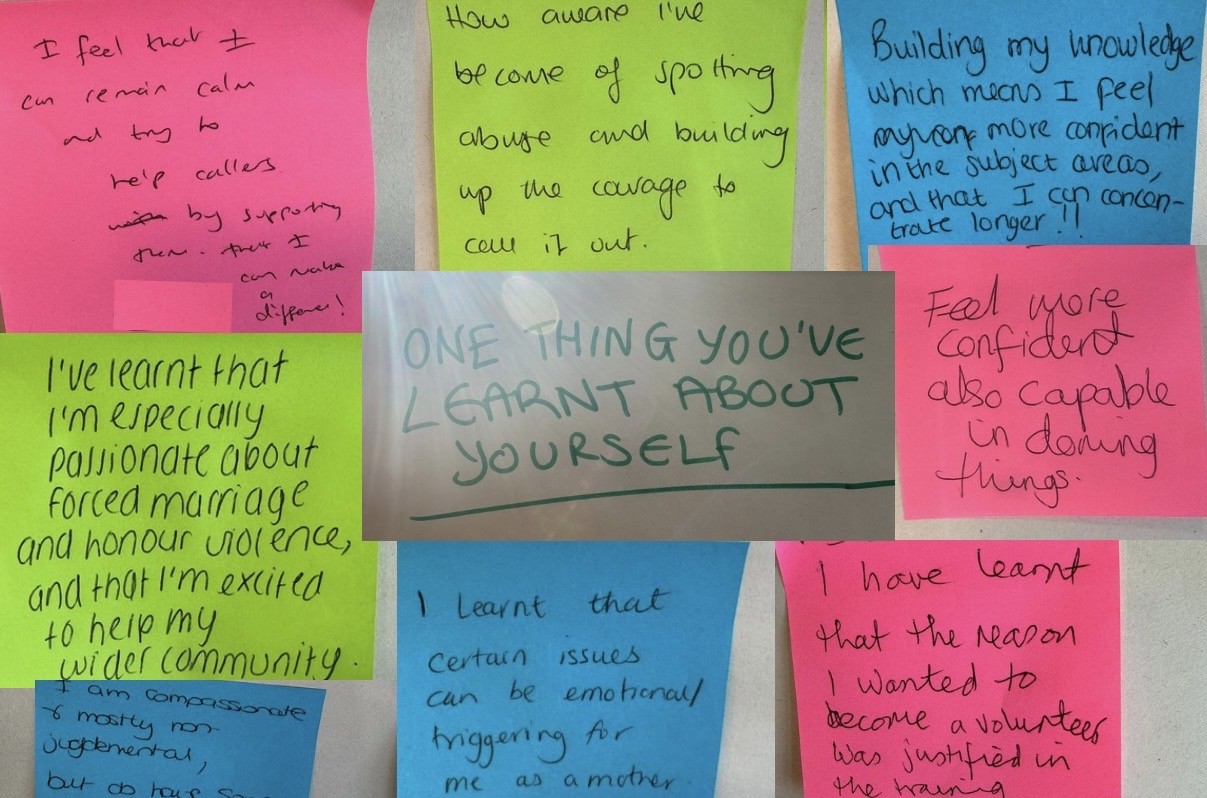 I feel that I
can remain calm
and try to
help callers
by supporting
them. that I
can make
a
difference!
How aware I've
become of spotting
abuse and building
up the courage to
call it out.
Building my knowledge
which means I feel
more confident
in the subject areas,
and that I can concen-
trate longer!!
I've learnt that
I'm especially
passionate about
forced marriage
and honour violence,
and that I'm excited
to help my
wider community.
ONE THING YOU'VE
LEARNT ABOUT
YOURSELF
Feel more
confident
also capable
in doning
things.
I am compassionate
& mostly non-
judgdemental,
but do have
I Learnt that
certain issues
can be emotional/
triggering for
me as a mother
I have learnt
that the reason
I wanted to
become a volunteer
was justified in
the training